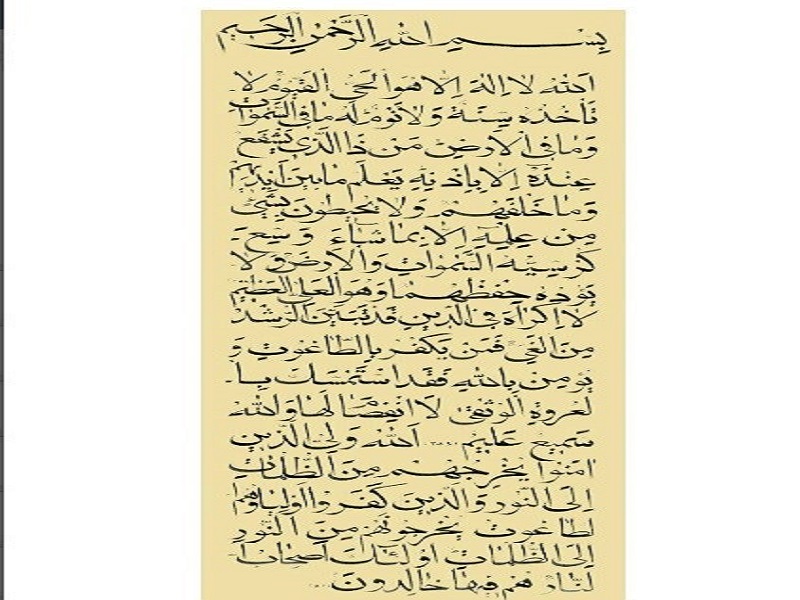 بِسْمِ اللهِ الرَّحْمٰنِ الرَّحِيمِ
اَللهُ لا اِلهَ اِلا هُوَ الحَيُّ القَيُّومُ لا
تَأخُذُهُ سِنَةٌ وَلا نَومٌ لَهُ ما فِي السَّمٰواتِ
وَما فِي الاَرْضِ مَنْ ذَا الَّذِي يَشْفَعُ
عِنْدَهُ اِلا بِاِذْنِهِ يَعْلَمُ ما بَينَ اَيْدِيهِمْ
وَما خَلْفَهُمْ وَلا يُحِيطُونَ بِشَيْءٍ
مِنْ عِلْمِهِ اِلا بِما شاءَ وَسِعَ
كُرْسِيُّهُ السَّمٰواتِ وَالاَرْضَ وَلا
يَؤُدُهُ حِفْظُهُما وَهُوَ العَلِيُّ العَظِيمُ
لا اِكْراهَ فِي الدِّينِ قَدْ تَبَيَّنَ الرُّشْدُ
مِنَ الغَيِّ فَمَنْ يَكْفُرْ بِالطّاغُوتِ وَ
يُؤمِنْ بِاللهِ فَقَدِ اسْتَمْسَكَ بِا
لعُروَةِ الوُثْقىٰ لا انْفِصامَ لَها وَاللهُ
سَمِيعٌ عَلِيمٌ .... اَللهُ وَلِيُّ الَّذِينَ
امَنُوا يُخْرِجُهُمْ مِنَ الظُّلُماتِ
اِلَى النُّورِ وَالَّذِينَ كَفَرُوا اَولِياؤُهُمُ
لطّاغُوتُ يُخْرِجُونَهُمْ مِنَ النُّورِ
اِلَى الظُّلُماتِ اُولئِكَ اَصْحابُ ا
لنّارِ هُمْ فِيها خالِدُونَ ....